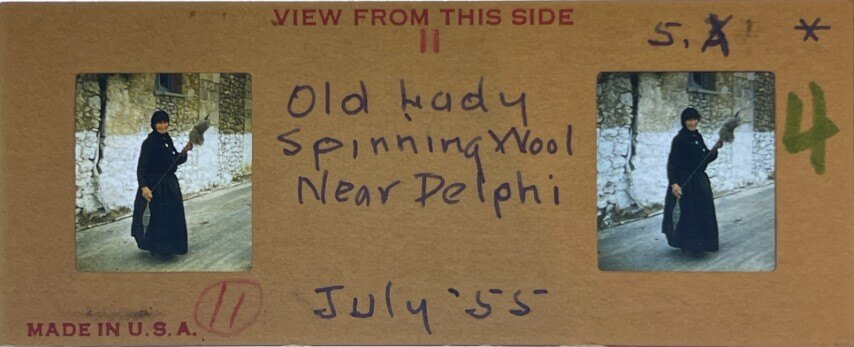 VIEW FROM THIS SIDE
11
S. *
4
Old Lady
Spinning Wool
Near Delphi
July '55
11
MADE IN U.S.A.